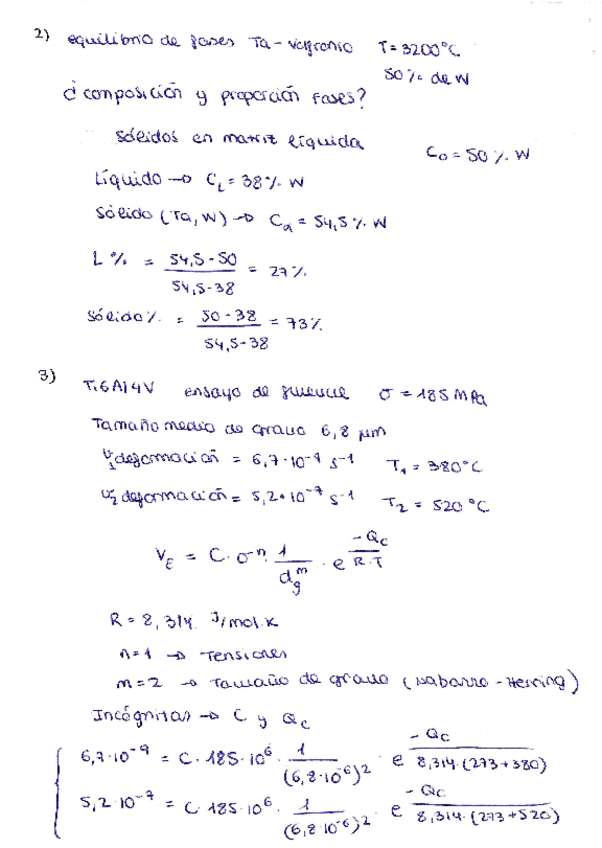 2) equilibrio de fases Ta-Wolframio T=3200°C
50% de W
¿composición y proporción fases?
Sólidos en matriz líquida
C₀ = 50% W
Líquido → C_L = 38% W
Sólido (Ta, W) → C_α = 54,5% W
L% = (54,5-50)/(54,5-38) = 27%
Sólido% = (50-38)/(54,5-38) = 73%
3) Ti6Al4V ensayo de fluencia σ = 185 MPa
Tamaño medio de grano 6,8 μm
V₁ deformación = 6,7·10⁻⁹ s⁻¹ T₁ = 380°C
V₂ deformación = 5,2·10⁻⁷ s⁻¹ T₂ = 520°C
V_E = C·σⁿ· 1/d_g^m · e^(-Q_c/R·T)
R = 8,314 J/mol·K
n=1 → Tensiones
m=2 → Tamaño de grano (Nabarro-Herring)
Incógnitas → C y Q_c
6,7·10⁻⁹ = C·185·10⁶· 1/(6,8·10⁻⁶)² · e^(-Q_c/8,314·(273+380))
5,2·10⁻⁷ = C·185·10⁶· 1/(6,8·10⁻⁶)² · e^(-Q_c/8,314·(273+520))